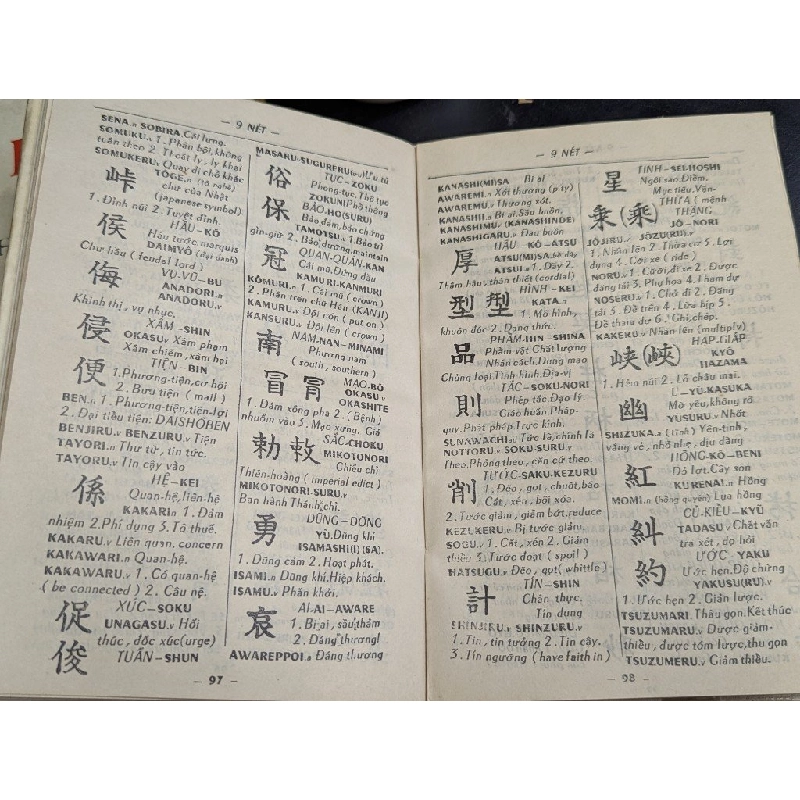 — 9 NÉT —
SENA.n SOBIRA. Cái lưng.
SOMUKU.n 1. Phản bội, không
tuân theo 2. Thoát ly, ly khai
SOMUKERU. Quay đi chỗ khác
峠 TŌGE.n (tō rabē)
chữ của Nhật
(japanese symbol)
1. Đỉnh núi 2. Tuyệt đỉnh.
侯 HẦU-KŌ
Hầu tước. marquis
DAIMYŌ (đại danh)
Chư hầu (fendal lord)
侮 VU-VŨ-BU
ANADORI.n
ANADORU.v
Khinh thị, vụ nhục.
侵 XÂM-SHIN
OKASU.v Xâm phạm
Xâm chiếm, xâm hại
便 TIỆN-BIN
1. Phương-tiện, cơ hội
2. Bưu tiện (mail)
BEN.n 1. Phương-tiện, tiện-lợi
2. Đại tiểu tiện: DAISHŌBEN
BENJIRU.v BENZURU.v Tiện
TAYORI.n Thư từ, tin tức.
TAYORU.v Tin cậy vào
係 HỆ-KEI
Quan-hệ, liên-hệ
KAKARI.n 1. Đảm
nhiệm 2. Phí dụng 3. Tô thuế.
KAKARU.v Liên quan. concern
KAKAWARI.n Quan-hệ.
KAKAWARU.v 1. Có quan-hệ
(be connected) 2. Câu nệ.
促 XÚC-SOKU
UNAGASU.v Hối
thúc, đốc xúc (urge)
俊 TUẤN-SHUN
MASARU-SUGURERU
俗 TỤC-ZOKU
Phong-tục, Thế tục
ZOKUNI
保 BẢO-HO(SURU)
Bảo đảm, bản chứng
TAMOTSU.v 1. Bảo trì
gìn-giữ 2. Bảo dưỡng. maintain
冠 QUAN-QUÁN-KAN
Cái mũ, Đứng đầu
KAMURI. KANMURI
KŌMURI.n 1. Cái mũ (crown)
2. Phần trên chữ Hán (KANJI)
KAMURU.v Đội nón (put on)
KANSURU.v Đội lên (crown)
南 NAM.NAN-MINAMI
Phương nam
(south, southern)
冒 冐 MẠO-BŌ
OKASU.v
OKASHITE
1. Dám xông pha 2. (Bệnh)
nhuốm vào 3. Mạo xưng. Giả
勅 敕 SẮC-CHOKU
MIKOTONORI
Chiếu chỉ
Thiên-hoàng (imperial edict)
MIKOTONORI-SURU.v
Ban hành Thánh chỉ.
勇 DŨNG-DÔNG
YŪ. Dũng khí
ISAMASHI(I)(SA).
1. Dũng cảm 2. Hoạt phát.
ISAMI.n Dũng khí. Hiệp khách.
ISAMU.v Phấn khởi.
哀 AI-AI-AWARE
1. Bi ai, sầu thảm
2. Đáng thương!
AWAREPPOI.a Đáng thương
— 97 —
— 9 NÉT —
KANASHIK(MI)SA Bi ai
AWAREMI.n Xót thương (pity)
AWAREMU.v Thương xót.
KANASHII.a Bi ai. Sầu muộn.
KANASHIMU.v (KANASHINDE)
KANASHIGARU.v Đau buồn
厚 HẬU KŌ-ATSU
ATSU(MI)SA bề dầy
ATSUI.a 1. Dầy 2.
Thâm hậu, thân thiết (cordial)
型 型 HÌNH-KEI
KATA.n
1. Mô hình,
khuôn đúc 2. Dạng thức.
品 PHẨM-HIN-SHINA
Phẩm vật Chất lượng
Nhân cách, Dáng mạo
Chủng loại, Tình hình, Địa-vị
則 TẮC-SOKU-NORI
Phép tắc Đạo lý
Giáo huấn Pháp-
quy. Phật pháp. Trực kính.
SUNAWACHI.ad Tức là, chính là
NOTTORU.v SOKU-SURU.v
Theo. Phỏng theo, căn cứ theo.
削 TƯỚC-SAKU-KEZURU
1. Đẽo, gọt, chuốt, bào
Cắt, xén, bôi xóa.
2. Tước giảm, giảm bớt. reduce
KEZUKERU.v Bị tước giảm.
SOGU.v 1. Cắt, xén 2. Giảm
thiểu 3. Tước đoạt (spoil)
HATSUGU.v Đẽo, gọt (whittle)
計 TÍN-SHIN
Chân thực,
Tín dụng
SHINJIRU.v SHINZURU.v
1. Tin, tin tưởng 2. Tin cậy.
3. Tín ngưỡng (have faith in)
星 TINH-SEI-HOSHI
Ngôi sao. Điểm.
Mục tiêu. Vận-
mệnh
乗(乘) THỪA
THẶNG
JŌ-NORI
JŌJIRU.v JŌZU(RU).v
1. Nhân lên 2. Thừa cơ 3. Lợi
dụng 4. Cỡi xe (ride)
NORU.v 1. Cưỡi, đi xe 2. Được
đăng tải 3. Phụ họa 4. Tham dự
NOSERU.v 1. Chở đi 2. Đăng
tải 3. Để trên 4. Lừa bịp 5.
Để tham dự 6. Ghi, chép.
KAKERU.v Nhân lên (multiply)
峡(峽) HẠP-GIÁP
KYŌ
HAZAMA
1. Hẻm núi 2. Lỗ châu mai.
幽 U-YŪ-KASUKA
Mờ yếu, không rõ
YUSURU.v Nhốt
SHIZUKA.n (tĩnh) Yên-tĩnh,
vắng vẻ, nhỏ nhẹ, dịu dàng
紅 HỒNG-KŌ-BENI
Đỏ lợt. Cây son
KURENAI. Hồng
MOMI.n (hồng quyên) Lụa hồng
糾 CỦ-KIỂU-KYŪ
TADASU.v Chất vấn
tra xét, dọ hỏi
約 ƯỚC YAKU
Ước hẹn. Độ chừng
YAKUSU(RU).v
1. Ước hẹn 2. Giản lược.
TSUZUMARI. Thâu gọn. Kết thúc
TSUZUMARU.v Được giảm-
thiểu, được tóm lược, thu gọn
TSUZUMERU.v Giảm thiểu.
— 98 —